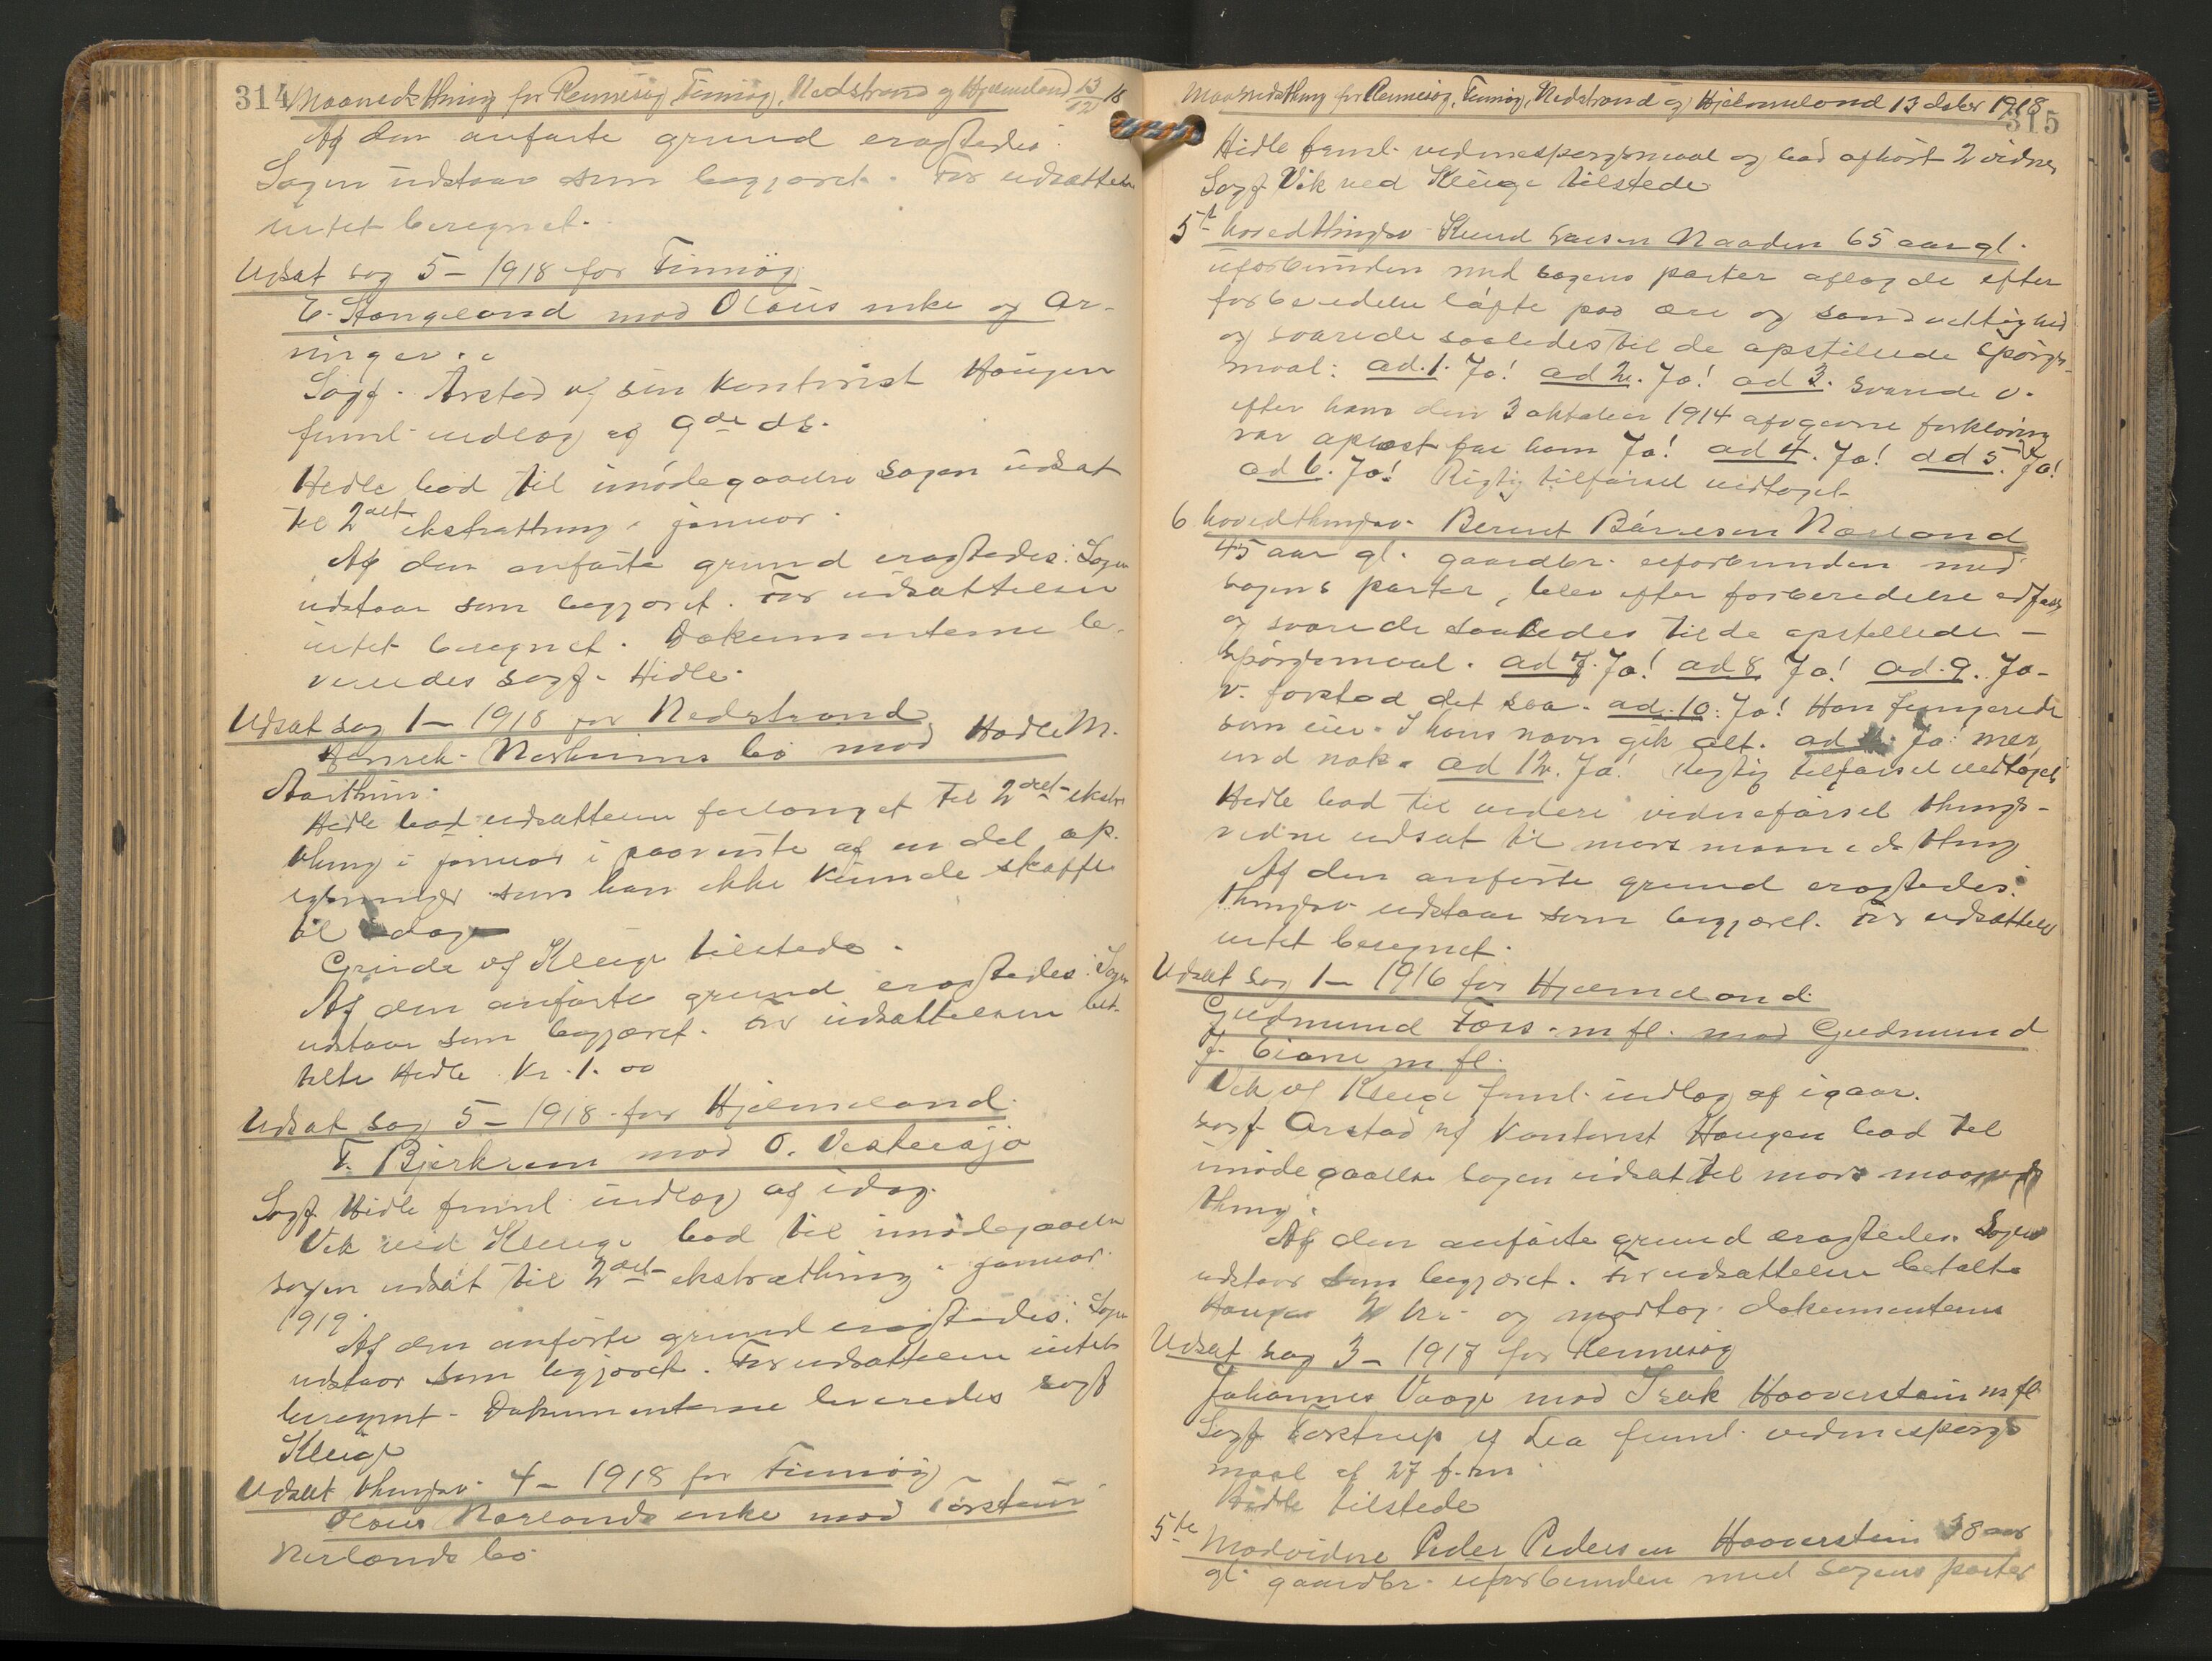 314 Maanedsthing for Rennesøy, Finnøy, Nedstrand og Hjelmeland 13/12 18
Af den anførte grund eragtedes:
Sagen udstaar som begjæret. For udsættelsen
intet beregnet.
Udsat sag 5 - 1918 for Finnøy
E. Stangeland mod Olaus enke og ar-
vinger.
Sagf. Arstad v/ sin kontorist Haugen
freml. indlæg af 9de ds.
Hidle bad til imødegaaelse sagen udsat
til 2det ekstrathing i januar.
Af den anførte grund eragtedes: Sagen
udstaar som begjæret. For udsættelsen
intet beregnet. Dokumenterne le-
veredes sagf. Hidle.
Udsat sag 1 - 1918 for Nedstrand
Henrik Nerheims bo mod Hadle M.
Aarthun.
Hidle bad udsættelsen forlænget til 2det ekstra
thing i januar i paavente af en del op-
lysninger som han ikke kunde skaffe
til idag
Grude v/ Kluge tilstede.
Af den anførte grund eragtedes: Sagen
udstaar som begjæret. For udsættelsen bet-
talte Hidle Kr. 1.00
Udsat sag 5 - 1918 for Hjelmeland.
T. Bjerkrem mod O. Vestersjø
Sagf. Hidle freml. indlæg af idag.
Vik ved Kluge bad til imødegaaelse
sagen udsat til 2det ekstrathing i januar
1919.
Af den anførte grund eragtedes: Sagen
udstaar som begjæret. For udsættelsen intet
beregnet. Dokumenterne leveredes sagf
Kluge
Udsat thingsv. 4 - 1918 for Finnøy
Olaus Nærlands enke mod Torstein
Nerlands bo
Maanedsthing for Rennesøy, Finnøy, Nedstrand og Hjelmeland 13 dsbr 1918
315
Hidle freml. vidnespørgsmaal og bad afhørt 2 vidner
Sagf Vik ved Kluge tilstede
5t hovedthingsv. Knud Naaden 65 aar gl.
uforbunden med sagens parter aflagde efter
forberedelse løfte paa ære og samvittighed
og svarede saaledes til de opstillede spørgs-
maal: ad. 1. Ja! ad 2. Ja! ad 3. svarede v.
efter hans den 3 oktober 1914 afgivne forklaring
var oplæst for ham Ja! ad 4. Ja! ad 5. Ja!
ad 6. Ja! Rigtig tilførsel vedtaget
6 hovedthingsv. Bernt Nærland
45 aar gl. gaardbr. uforbunden med
sagens parter, blev efter forberedelse
og svarede saaledes til de opstillede -
spørgsmaal. ad 7. Ja! ad 8 Ja! ad. 9. Ja -
v. forstod det saa. ad. 10: Ja! Han fungerede
som eier. I hans navn gik alt. ad Ja: mer
end nok. ad 12. Ja! Rigtig tilførsel vedtaget
Hidle bad til videre vidneførsel things-
vidne udsat til mars maaneds thing
Af den anførte grund eragtedes:
Thingsv. udstaar som begjæret. For udsættelse
intet beregnet.
Udsat sag 1 - 1916 for Hjelmeland.
Gudmund Fors m fl. mod Gudmund
J. Eiane m fl.
Vik v/ Kluge freml. indlæg af igaar.
sagf Arstad v/ kontorist Haugen bad til
imødegaaelse sagen udsat til mars maaneds
thing.
Af den anførte grund eragtedes. Sagen
udstaar som begjæret. For udsættelsen betalte
Haugen 2 kr. og modtog dokumenterne
Udsat sag 3 - 1917 for Rennesøy
Johannes Vaage mod Isak Haaverstein m fl.
Sagf Tastrup v/ Lea freml. vidnespørgs
maal af 27 f. m.
Hidle tilstede
5te Modvidne Peder Pedersen Haaverstein 38 aar
gl. gaardbr. uforbunden med sagens parter